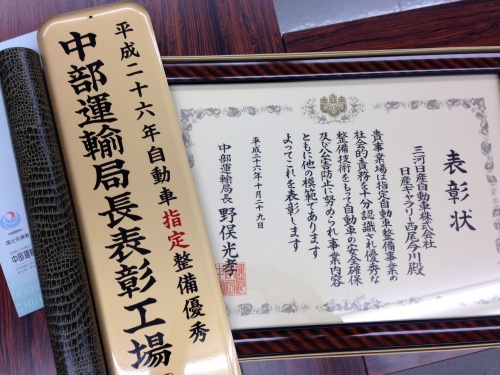 平成二十六年自動車指定整備優秀
中部運輸局長表彰工場
表彰状
三河日産自動車株式会社
日産ギャラリー西尾今川殿
貴事業場は指定自動車整備事業の
社会的責務を十分認識され優秀な
整備技術をもって自動車の安全確保
及び公害防止に努められ事業内容
ともに他の模範であります
よってこれを表彰します
平成二十六年十月二十九日
中部運輸局長 野俣光孝
国土交通省